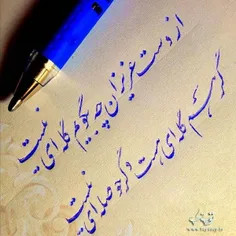 از دست عزیزان چه بگویم گله‌ای نیست
گر هم گله‌ای هست دگر حوصله‌ای نیست